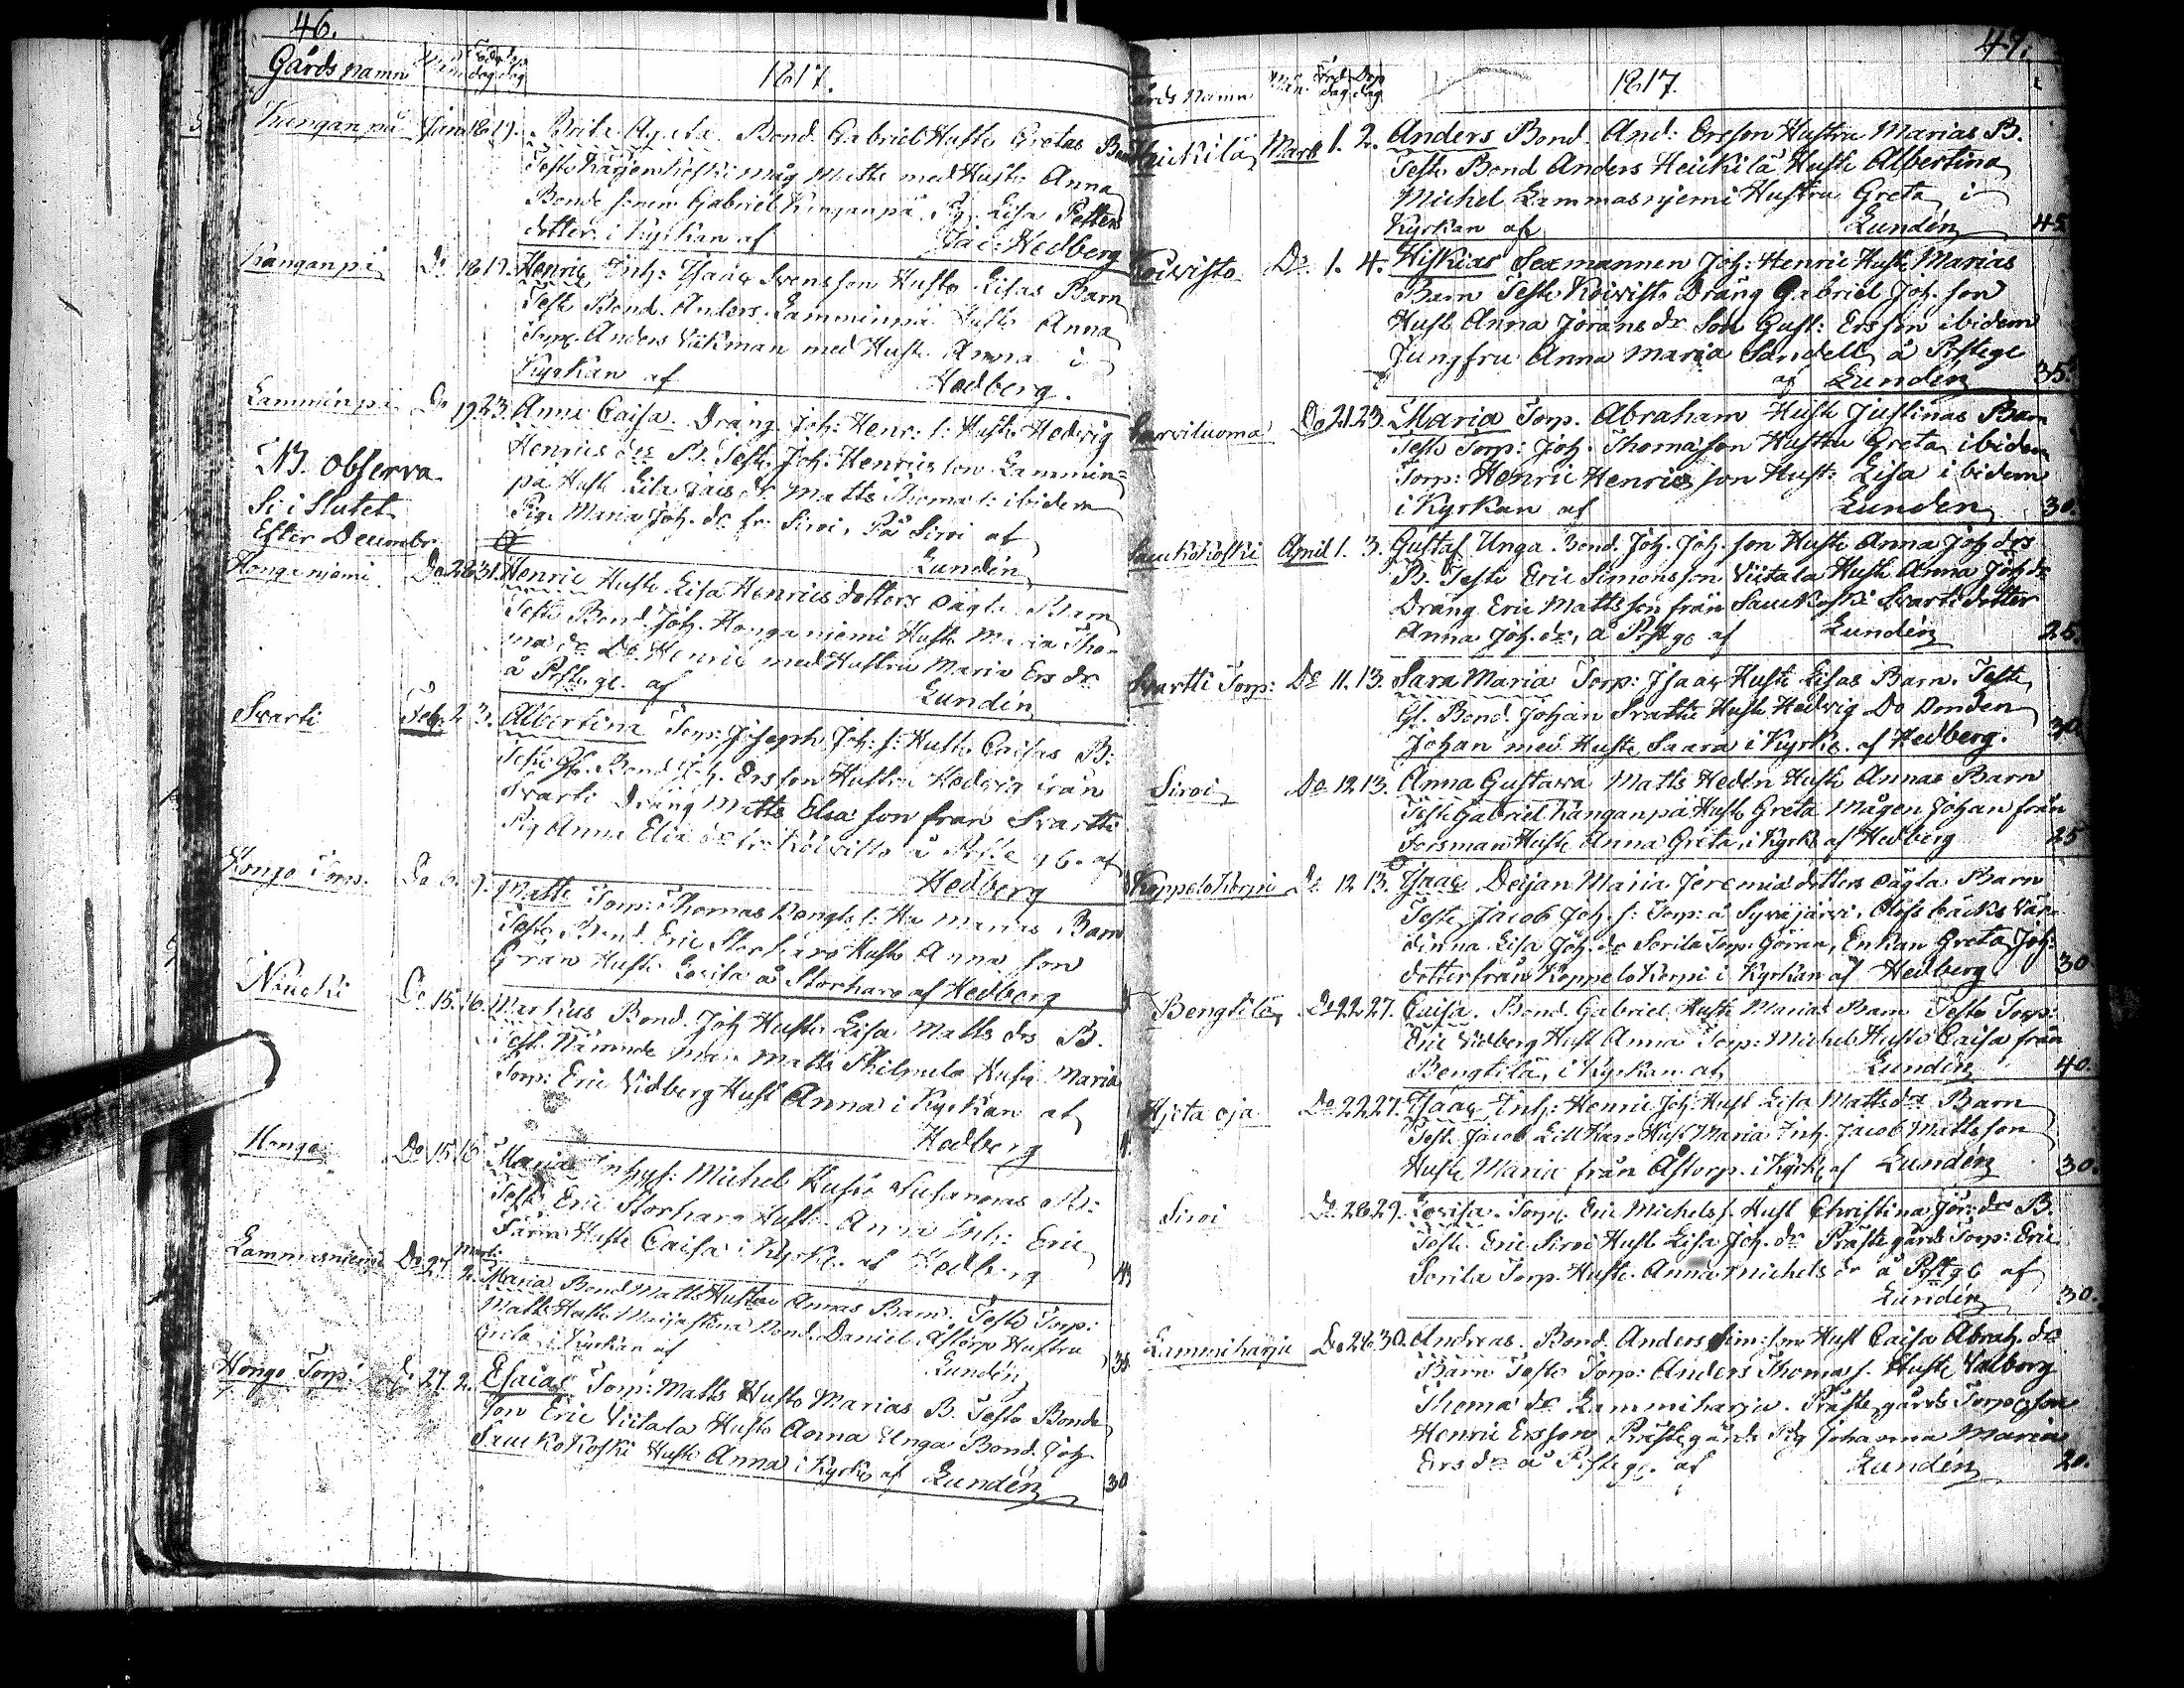 46.
Gårds namn Födr Döp dag dag 1817.
Kanganpä Jan 18 19. Brita Agata Bond. Gabriel Hustr Gretas
Testr måg Matts med Hustr Anna
Bonde sonen Gabriel Kanganpä Pig. Lisa Petters
dotter i Kyrkan af Jac: Hedberg
Kanganpä Do 18 19. Henric Inh: Isaac Svensson Hustr Lisas Barn
Test Bond. Anders Lamminpä Hustr Anna
Torp. Anders Vikman med Hustr Anna i
Kyrkan af Hedberg.
Lamminpä Do 19 23. Anna Caisa Dräng Joh: Henr: s: Hustr Hedvig
Henrics drs B. Testr Joh: Henricsson Lammin=
pä Hustr Matts Thomas: ibidem
Pig. Maria Joh. dr fr: Siroi, På Siroi af
Lundén
NB. Observa
Si i Slutet
Efter Decembr
Honganjemi Do 28 31. Henric Hustr Lisa Henricsdotters oägta Barn
Testr Bond. Joh. Honganjemi Hustr Maria Tho-
ma dr Do Henric med Hustru Maria Ers dr
å Prstge. af Lundén
Svarti Feb. 2 3. Albertina Torp: Joseph Joh: s: Hustr Caisas B:
Testr Gl. Bond Joh. Ersson Hustru Hedvig från
Svarti Dräng Matts Elia son från Svartti
Pig Anna Elia dr fr: Koivisto å Prstege af
Hedberg
Hongo Torp. Do 6. 9. Matts Torp: Thomas Bengts s: Hu Marias Barn
Testr Bond. Eric Storharo Hustr Anna son
Göran Hustr Lovisa å Storharo af Hedberg
Do 15. 16. Markus Bond. Joh Hustr Lisa Matts drs B.
Test. Nämnde Man Matts Hustr Maria
Torp: Eric Vidberg Hust Anna i Kyrkan af
Hedberg
Hongo Do 15 16 Maria Inhys: Michel Hustr Susannas B:
Testr Eric Storharo Hustr Anna Inh: Eric
Hustr Caisa i Kyrke. af Hedberg
Lammasniemi Do 27. Mart: 2. Maria Bond Matts Hustru Annas Barn. Testr Torp:
Matts Hustr Maijastina Bond. Daniel Åstorp Hustru
Greta i Kyrkan af Lundén
Hongo Torp: Do 27. 2. Esaias Torp: Matts Hustr Marias B. Testr Bonde
son Eric Viitala Hustr Anna Unga Bond. Joh
Saukokoski Hustr Anna i Kyrko af Lundén 30
47.
Gårds namn Mån. Föd Döp dag dag 1817.
Heickilä Mart 1. 2. Anders Bond. And: Ersson Hustru Marias B.
Testr Bond Anders Heickilä Hustr Albertina
Michel Lammasnjemi Hustru Greta i
Kyrkan af Lundén 45
Koivisto Do 1. 4. Hiskias Sexmannen Joh: Henric Hustr Marias
Barn Testr Koivisto Dräng Gabriel Joh. son
Hust Anna Jörans dr Son Gust: Ersson ibidem
Jungfru Anna Maria Sandell å Prstege
af Lundén 35
Do 21 23. Maria Torp. Abraham Hustr Justinas Barn
Testr Torp: Joh: Thomasson Hustru Greta ibidem
Torp: Henric Henricsson Hustr Lisa ibidem
i Kyrkan af Lundén 30.
Saukokoski April 1. 3. Gustaf Unga Bond. Joh. Joh. son Hustr Anna Joh drs
B. Testr Eric Simonsson Viitala Hustr Anna Joh dr
Dräng Eric Mattsson från Saukoski Svarti dotter
Anna Joh. dr, å Prstge af Lundén 25.
Svartti Torp: Do 11. 13. Sara Maria Torp: Isaac Hustr Lisas Barn. Testr
Gl. Bond. Johan Svartti Hustr Hedvig Do Bonden
Johan med Hustr Saara i Kyrke. af Hedberg. 30
Siroi Do 12 13. Anna Gustava Matts Hedén Hustr Annas Barn
Testr Gabriel Kanganpä Hustr Greta Mågen Johan från
Forsman Hustr Anna Greta, i Kyrko af Hedberg 25
Koppelokorpi Do 12 13. Isaac Dejan Maria Jeremia dotters oägta Barn
Testr Jacob Joh. s: Torp: å Syväjärvi, Olofs bäcks Vär-
dinna Lisa Joh. dr Sorila Torp: Göran, Enkan Greta Joh:
dotter från Koppelokorpi i Kyrkan af Hedberg 30
Bengtilä Do 22 27. Caisa. Bond. Gabriel Hustr Marias Barn Testr Torp:
Eric Vidberg Hust Anna Torp: Michel Hustr Caisa från
Bengtilä, i Kyrkan af Lundén 40.
Hjeta oja Do 22 27. Isaac Inh: Henric Joh: Hust Lisa Matts drs Barn
Testr Jacob Lillkaro Hust Maria Inh. Jacob Mattsson
Hustr Maria från Åstorp. i Kyrke af Lundén 30.
Siroi Do 28 29. Lovisa. Torp Eric Michels s. Hust Christina Jör: drs B.
Testr Eric Siroi Hust Lisa Joh. dr Prästegårds Torp: Eric
Sorila Torp. Hustr. Anna Michels dr å Prstge af
Lundén 30.
Lammiharju Do 28 30. Andreas. Bond. Anders Sim: son Hust Caisa Abrah. drs
Barn Testr Torp: Anders Thomas s. Hustr Valborg
Thoma dr Lammiharju. Prästegårds Torp. son
Henric Ersson Prästegårds Pig Johanna Maria
Ers dr å Prstege. af Lundén 20.